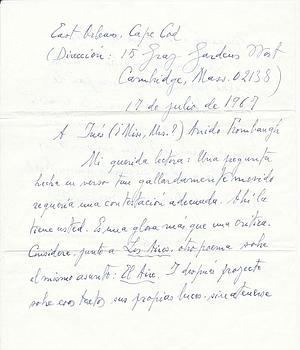 East Orleans, Cape Cod
(Dirección: 15 Gray Gardens West
Cambridge, Mass. 02138)
17 de julio de 1967
A Inés (¿Miss, Mrs.?) Arrido Frombaugh
Mi querida lectora: Una pregunta
hecha en verso tan gallardamente movido
requería una contestación adecuada. Ahí la
tiene usted. Es una glosa más que una crítica.
Considere, junto a Los Aires, otro poema sobre
el mismo asunto: El Aire. Y después proyecte
sobre esos textos sus propias luces, sin atenerse